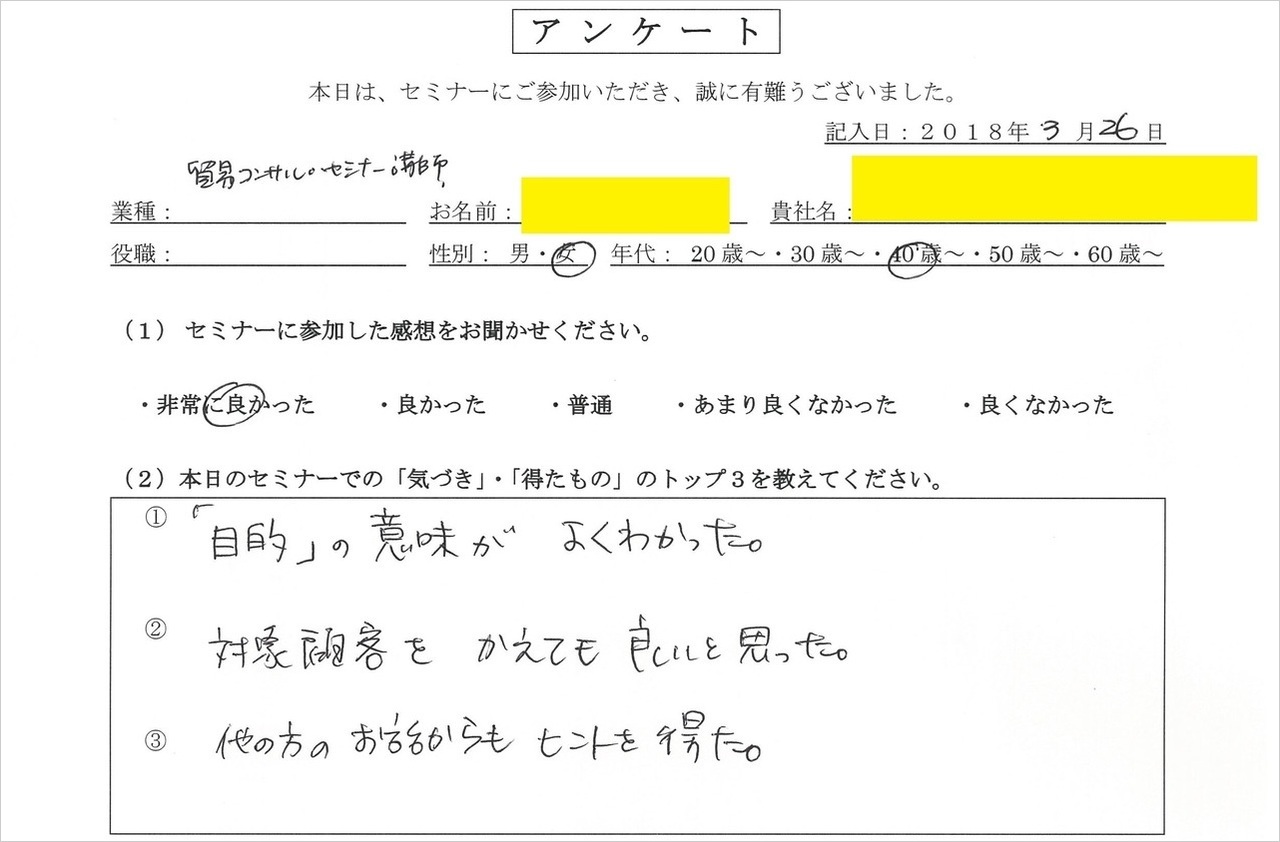 アンケート
本日は、セミナーにご参加いただき、誠に有難うございました。
記入日：２０１８年 3 月 26 日
貿易コンサル・セミナー講師
業種： お名前： 貴社名：
役職： 性別： 男・女 年代： 20歳～・30歳～・40歳～・50歳～・60歳～
（１） セミナーに参加した感想をお聞かせください。
・非常に良かった ・良かった ・普通 ・あまり良くなかった ・良くなかった
（２）本日のセミナーでの「気づき」・「得たもの」のトップ３を教えてください。
① 「目的」の意味が よくわかった。
② 対象顧客を かえても 良しいと思った。
③ 他の方の お話からも ヒントを得た。